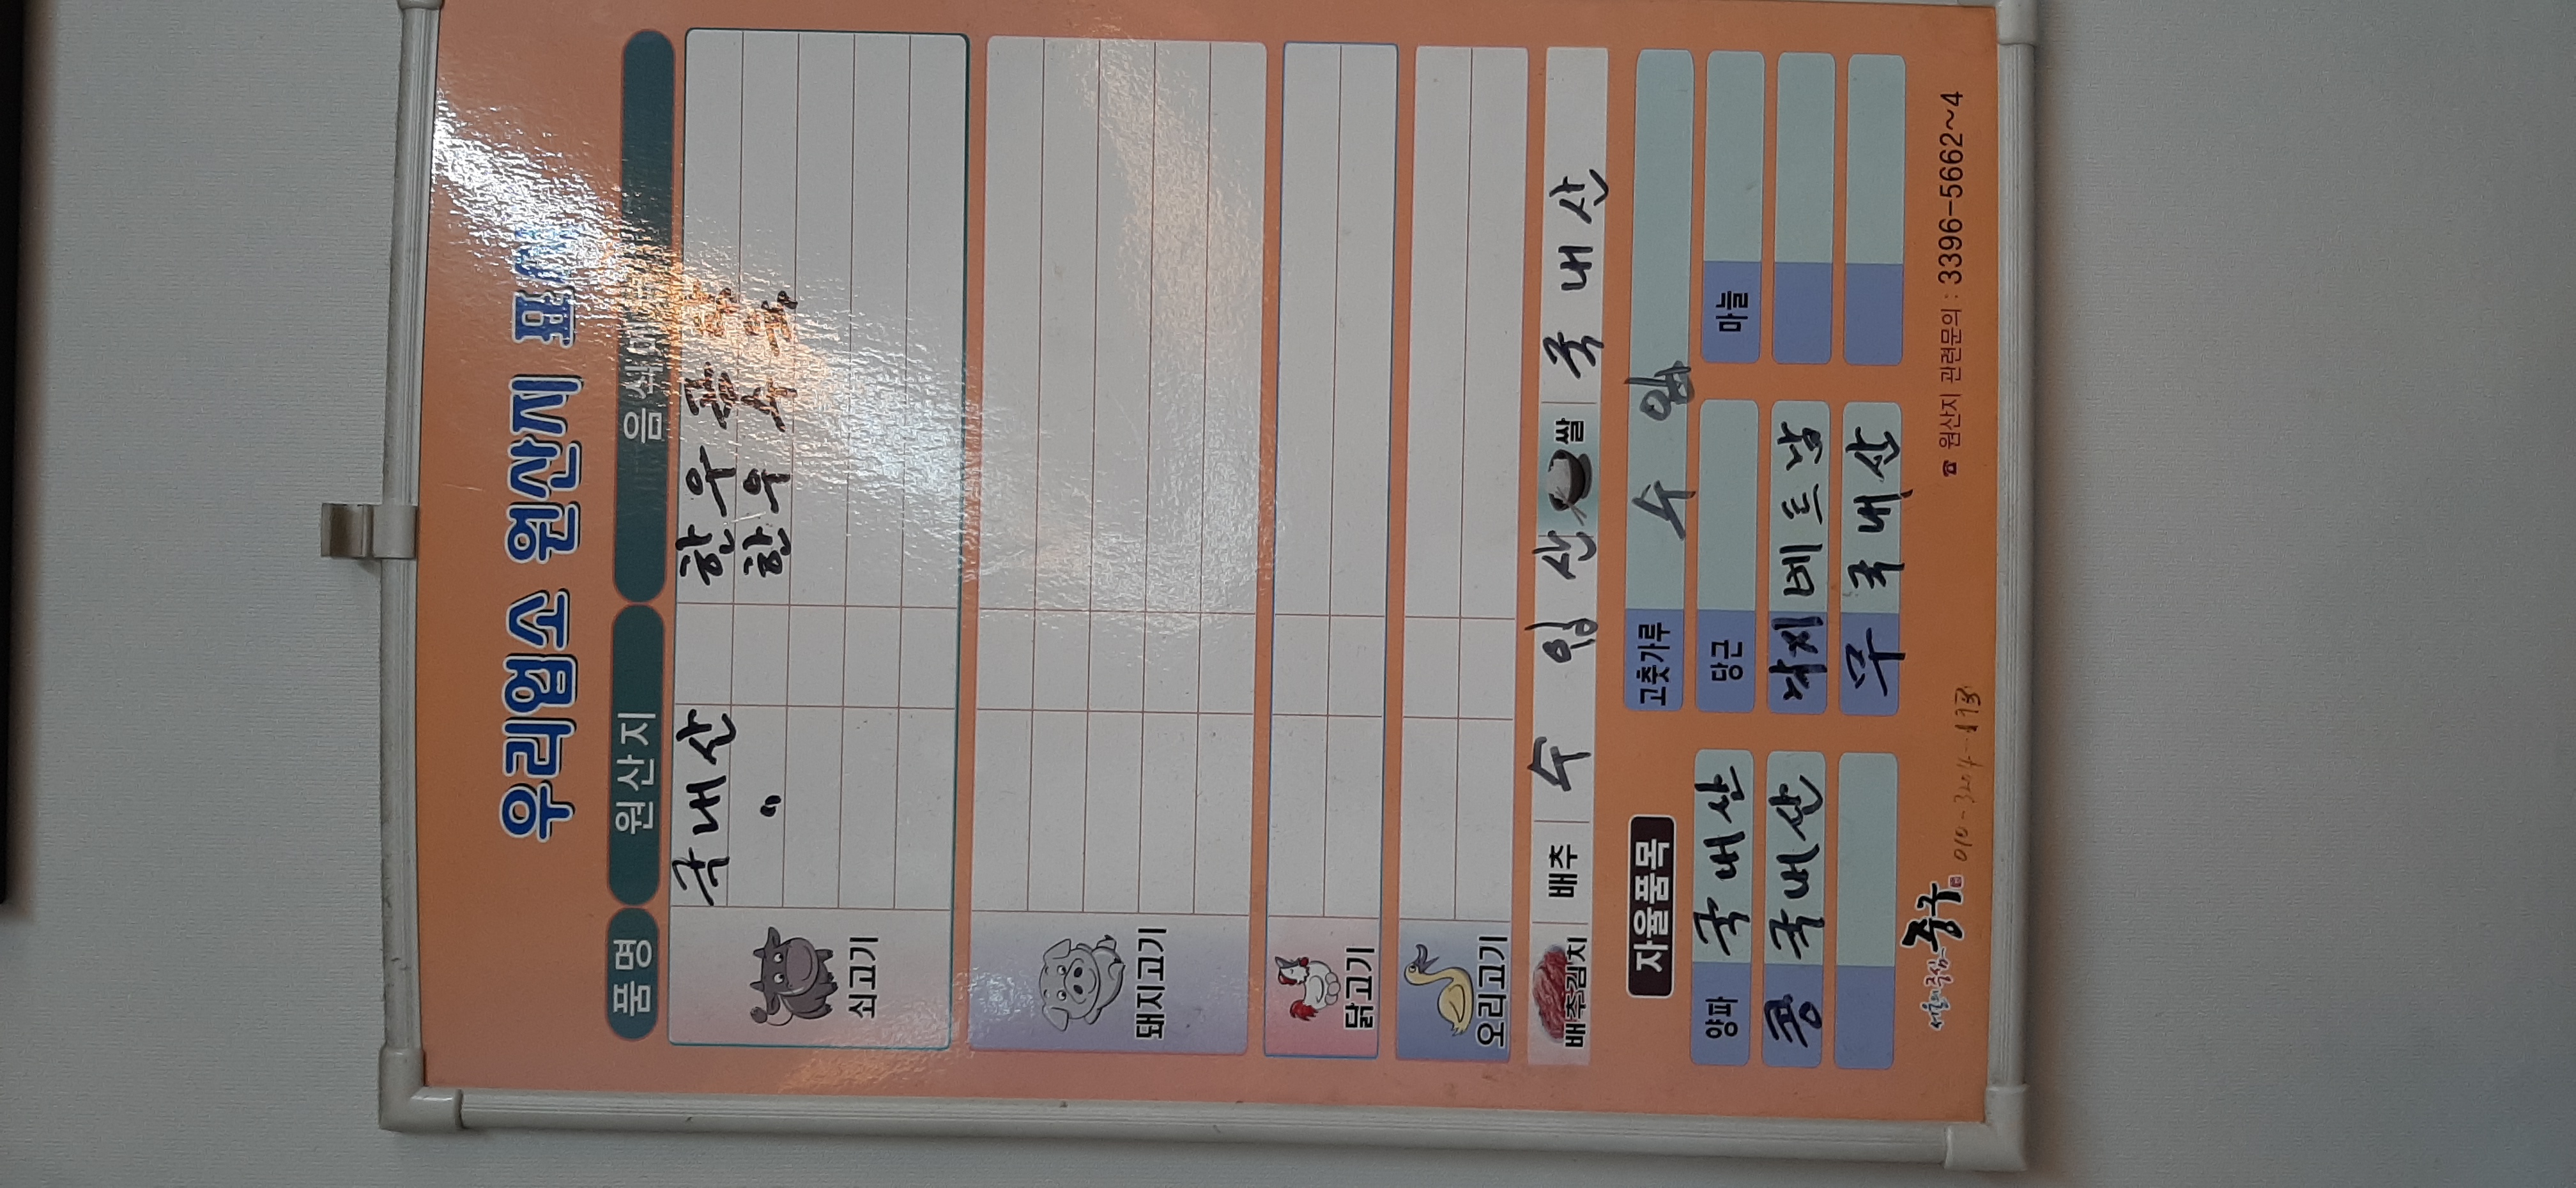 우리업소 원산지 표시
품명 원산지 음식
쇠고기 국내산 한우 곰국
〃 한우 수육
돼지고기
닭고기
오리고기
배추김치 배추 수입산 쌀 국내산
자율품목 고춧가루 수입
양파 국내산 당근 마늘
콩 국내산 낙지 베트남
무 국내산
서울의 중심 중구
☎ 원산지 관련문의 : 3396-5662~4